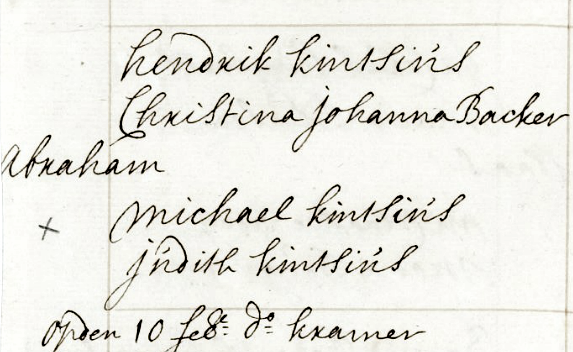 hendrik kintsiús
Christina johanna Backer
Abraham
michael kintsiús
júdith kintsiús
opden 10 feb:e do kramer